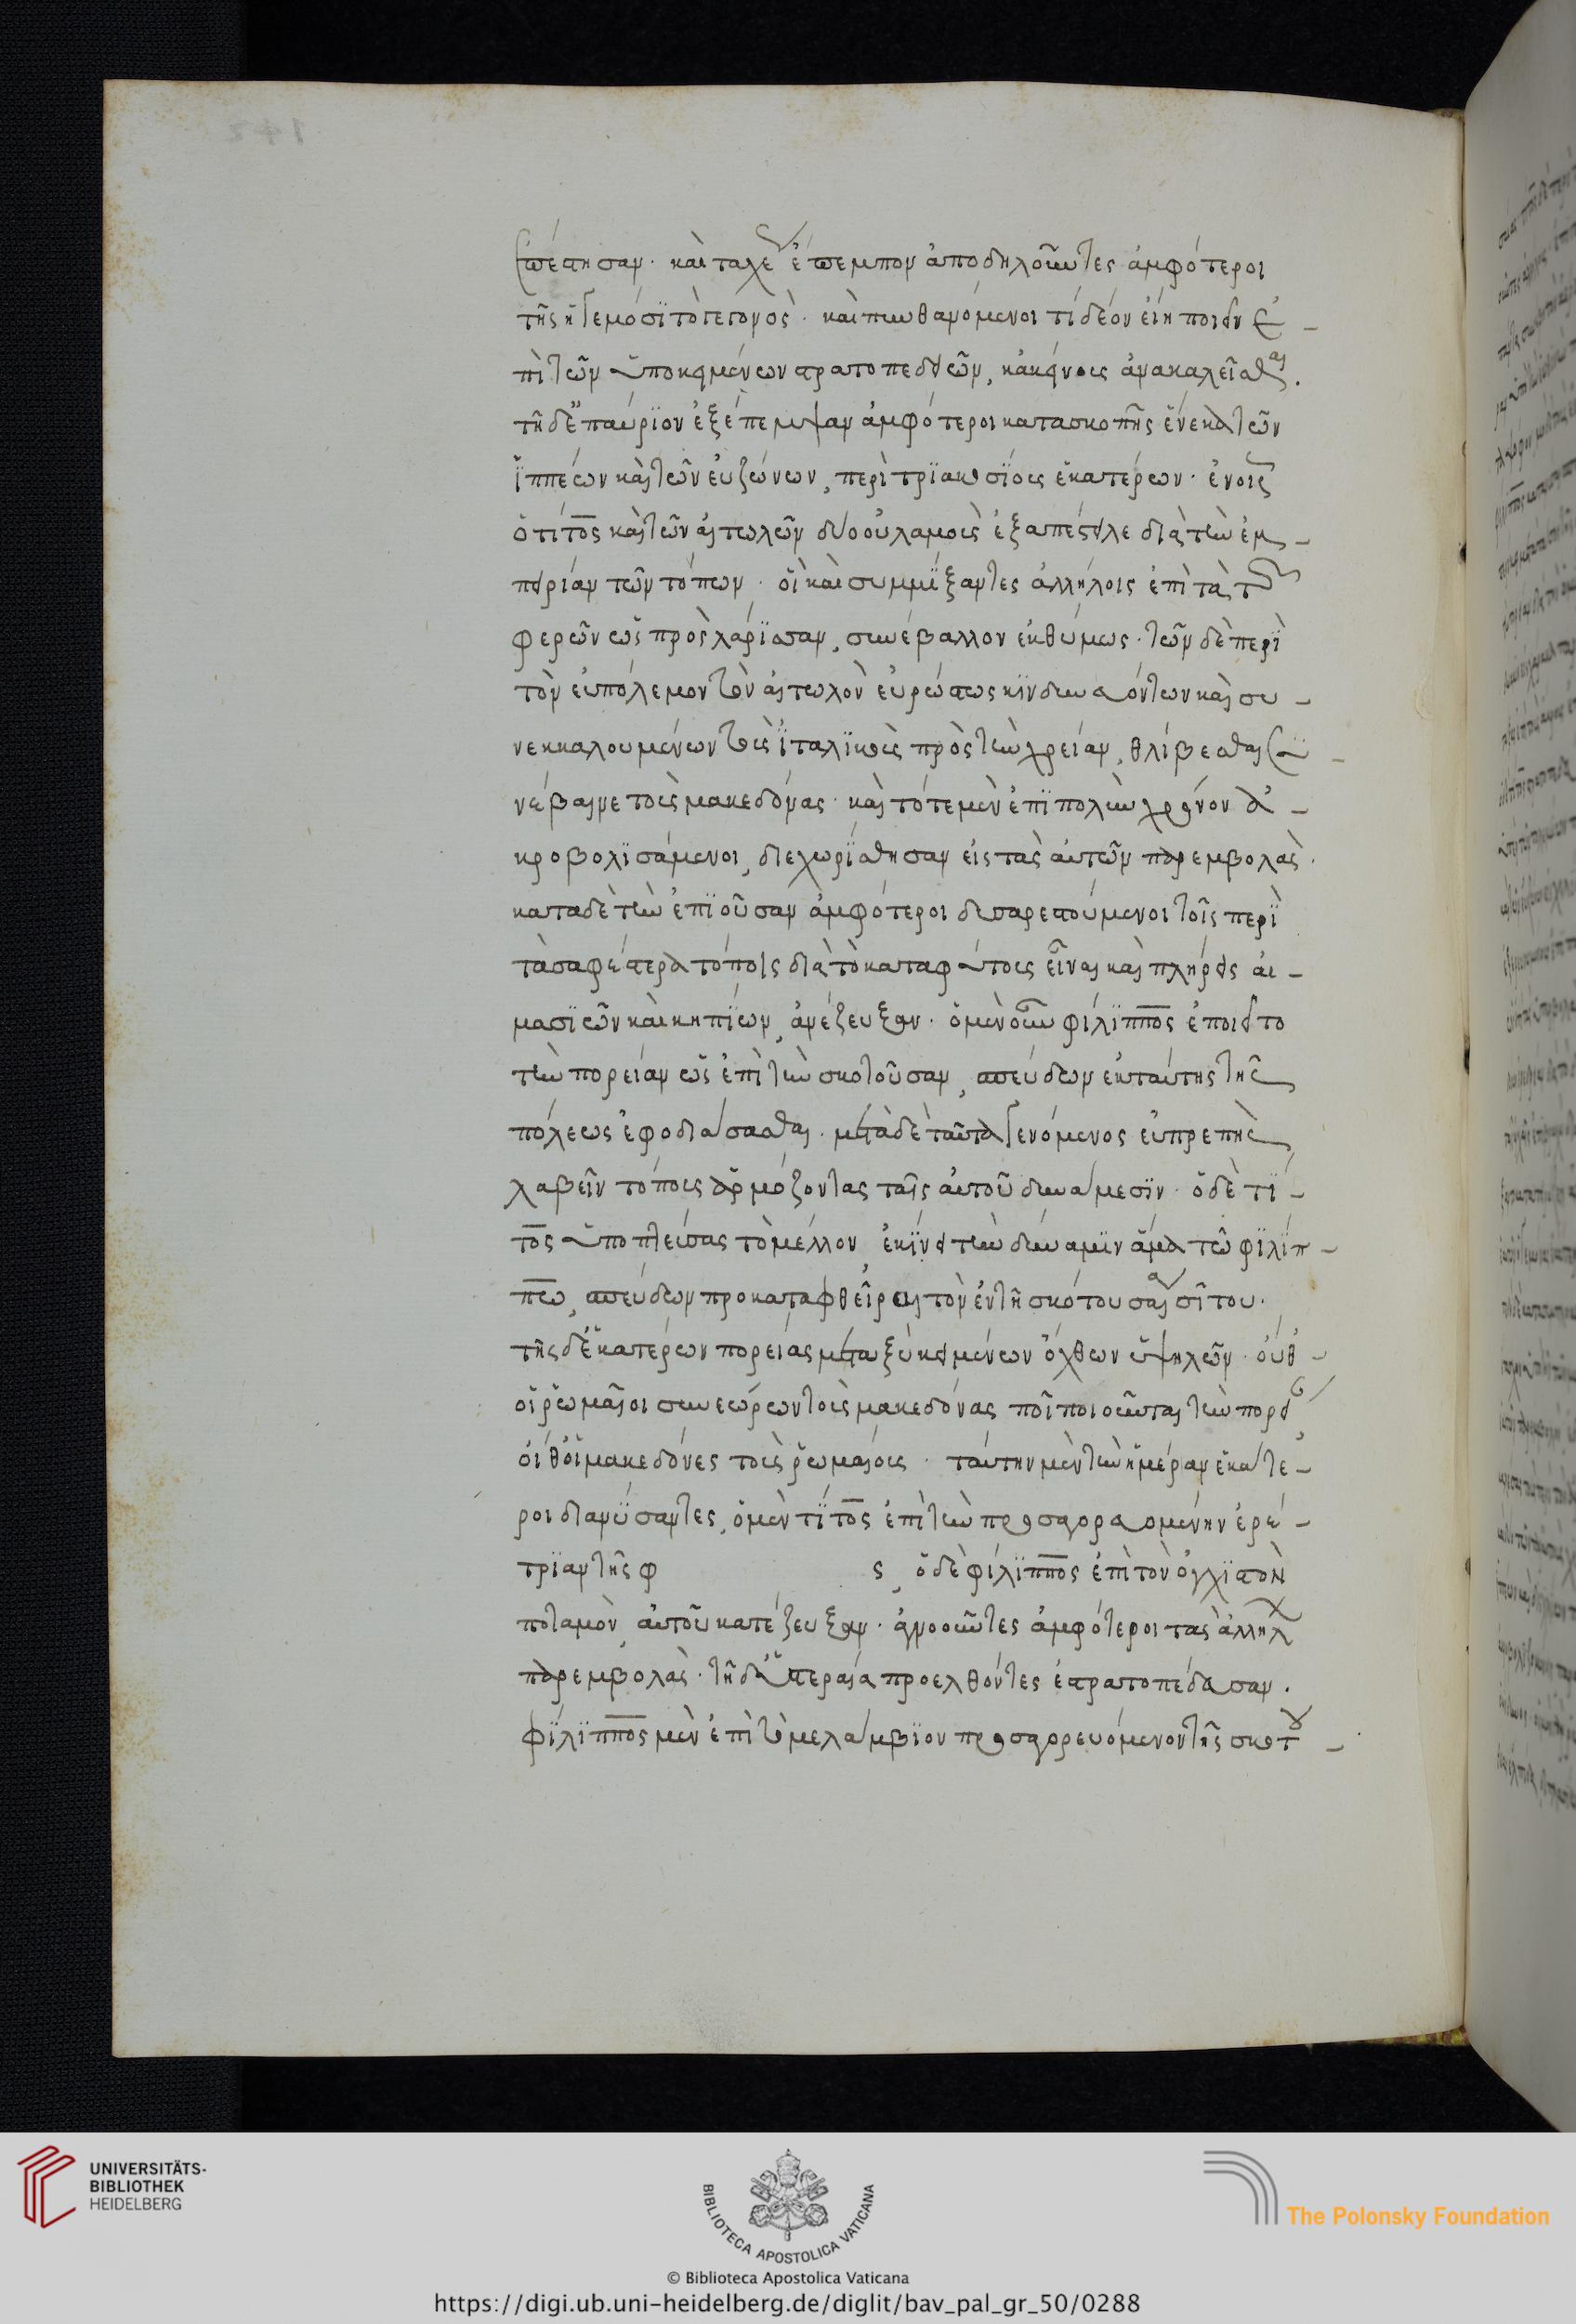 ἐπέστησαν· καὶ ταχέως ἔπεμπον ἀποδηλοῦντες ἀμφότεροι
τῆς ἡγεμόσϊ τὸ γεγονὸς· καὶ πυνθανόμενοι τί δέον εἴη ποιεῖν ἐ-
πὶ τῶν ὑποκειμένων στρατοπεδειῶν, κἀκείνους ἀνακαλεῖσθαι.
τῆ δὲ ἐπαύριον ἐξέπεμψαν ἀμφότεροι κατασκοπῆς ἕνεκα τῶν
ἱππέων καὶ τῶν εὐζώνων, περὶ τρϊακοσϊους ἑκατέρων· ἐν οἷς
ὁ τίτος καὶ τῶν αἰτωλῶν δύο οὐλαμοὺς ἐξαπέστειλε διὰ τὴν ἐμ-
πειρίαν τῶν τόπων· οἳ καὶ συμμΐξαντες ἀλλήλοις ἐπὶ τὰ τῶν
φερῶν ὡς πρὸς λαρίσσαν, συνέβαλλον ἐκθύμως· τῶν δὲ περὶ
τὸν εὐπόλεμον τὸν αἰτωλὸν εὐρώστως κινδυνευόντων καὶ συ-
νεκκαλουμένων τοὺς ἰταλϊκοὺς πρὸς τὴν χρείαν, θλίβεσθαι συ-
νέβαινε τοὺς μακεδόνας· καὶ τότε μὲν ἐπὶ πολὺν χρόνον ἀ-
κροβολϊσάμενοι, διεχωρίσθησαν εἰς τὰς αὐτῶν παρεμβολὰς.
κατα δὲ τὴν ἐπϊοῦσαν ἀμφότεροι δυσαρεστούμενοι τοῖς περὶ
τὰς αφέστερα τόποις διὰ τὸ καταφύτους εἶναι καὶ πλήρεις αἱ-
μασϊῶν καὶ κηπΐων, ἀνέζευξαν· ὁ μὲν οὖν φίλϊππος ἐποιεῖτο
τὴν πορείαν ὡς ἐπὶ τὴν σκοτοῦσαν, σπεύδων ἐκ ταύτης τῆς
πόλεως ἐφοδιάσασθαι. μετὰ δὲ ταῦτα γενόμενος εὐπρεπὴς
λαβεῖν τόπους ἁρμόζοντας ταῖς αὐτοῦ δυνάμεσϊν. ὁ δὲ τί-
τος ὑποπτεύσας τὸ μέλλον, ἐκίνει τὴν δύναμϊν ἅμα τῶ φϊλίπ-
πω, σπεύδων προκαταφθεῖραι τὸν ἐν τῆ σκοτουσαία σῖτον.
τῆς δὲ ἑκατέρων πορείας μεταξὺ κειμένων ὄχθων ὑψηλῶν. οὔθ
οἱ ῥωμαῖοι συνεώρων τοὺς μακεδόνας ποῖ ποιοῦνται τὴν πορεί
οὔθ οἱ μακεδόνες τοὺς ῥωμαίους. ταύτην μὲν τὴν ἡμέραν ἑκάτε-
ροι διανΰσαντες, ὁ μὲν τίτος ἐπὶ τὴν προσαγορευομένην ἐρέ-
τρϊαν τῆς φ ς, ὁ δὲ φίλϊππος ἐπὶ τὸν ὀγχϊστὸν
ποταμὸν, αὐτοῦ κατέζευξαν. ἀγνοοῦντες ἀμφότεροι τὰς ἀλλήλ
παρεμβολὰς. τῆ δὲ ὑστεραία προελθόντες ἐστρατοπέδευσαν.
φΐλϊππος μὲν ἐπὶ τὸ μελάμβϊον προσαγορευόμενον τῆς σκοτου-
UNIVERSITÄTS-
BIBLIOTHEK
HEIDELBERG
BIBLIOTECA APOSTOLICA VATICANA
The Polonsky Foundation
© Biblioteca Apostolica Vaticana
https://digi.ub.uni-heidelberg.de/diglit/bav_pal_gr_50/0288